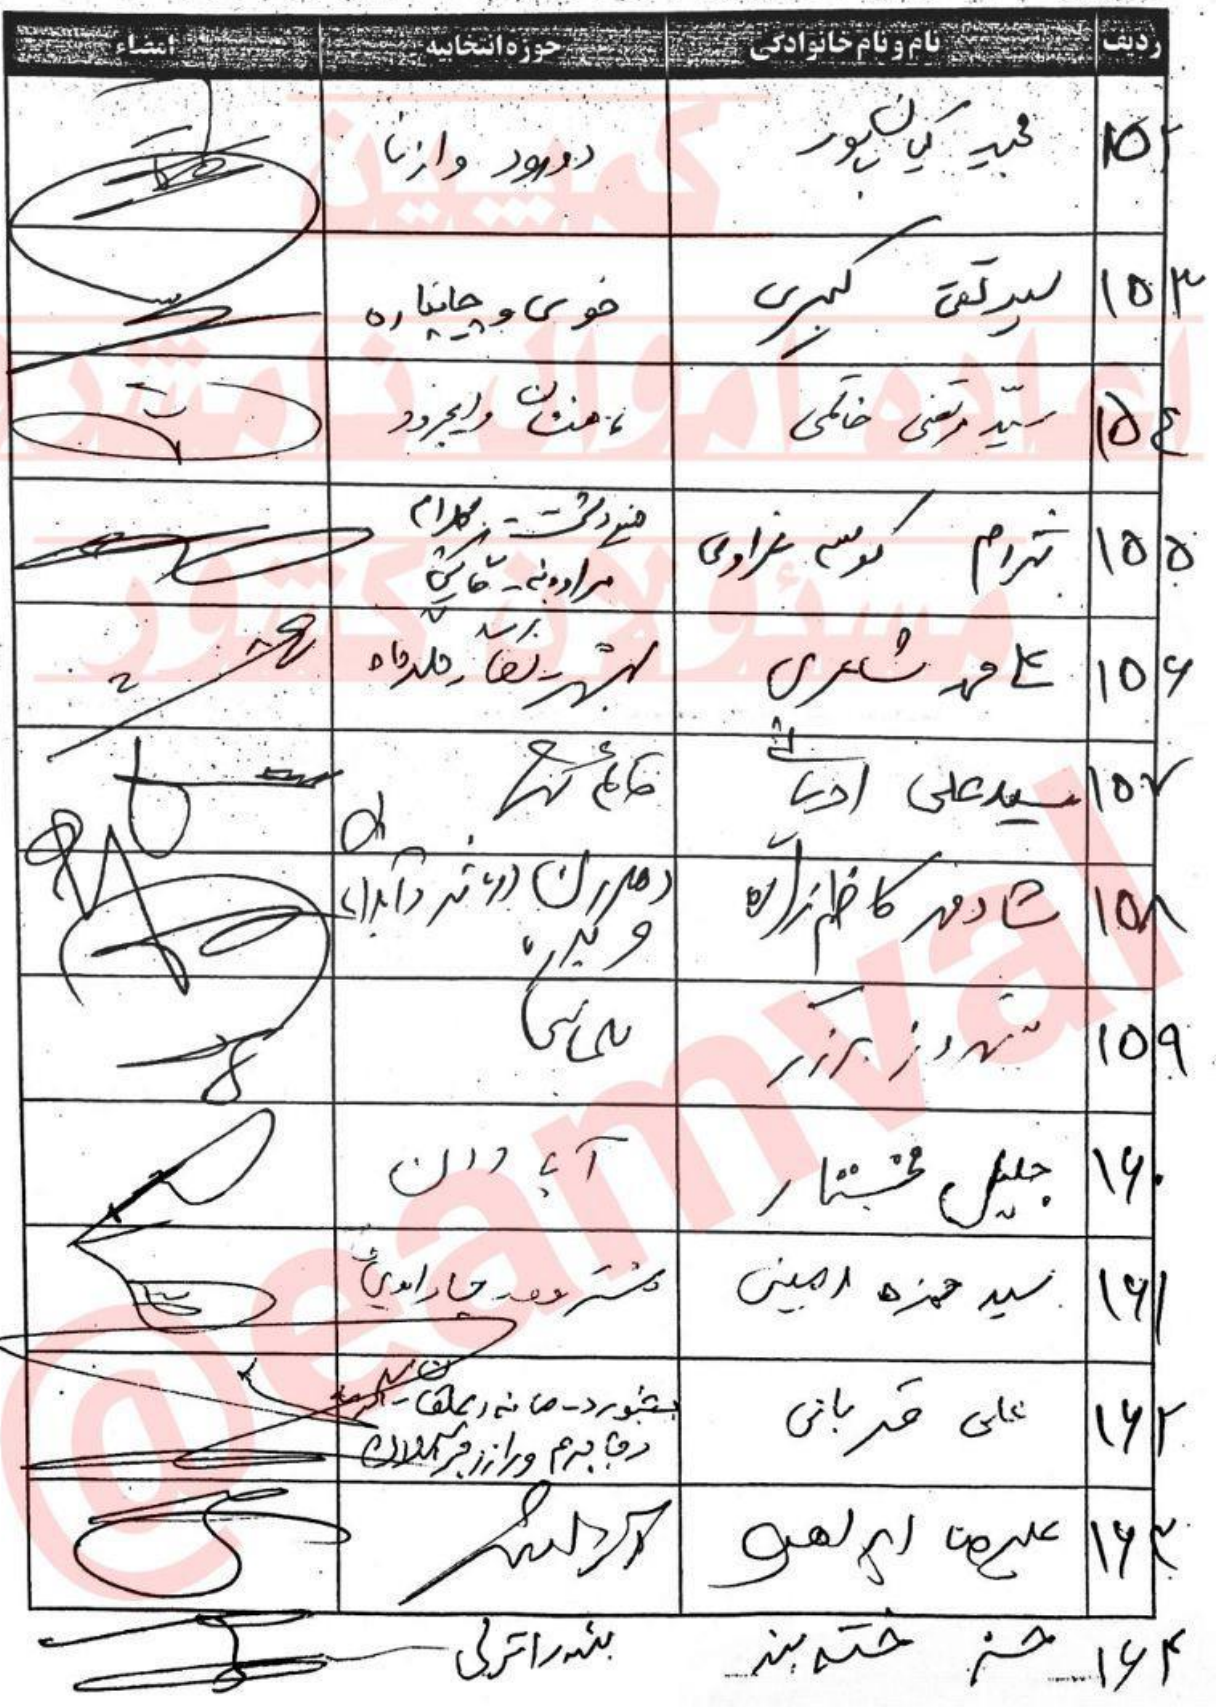 ردیف نام و نام خانوادگی حوزه انتخابیه امضاء
۱۵۲ مجید کیان‌پور دورود و ازنا
۱۵۳ سید تقی کبیری خوی و چایپاره
۱۵۴ سیّد مرتضی خاتمی ماهنشان و ایجرود
۱۵۵ شهرام کوسه غراوی مینودشت کلاله
مراوه‌تپه - گالیکش
۱۵۶ شاعری بهشهر - نکا
۱۵۷ سیدعلی ادیانی قائم شهر
۱۵۸ شادمهر کاظم‌زاده دهلران دره شهر و آبدانان
و بدره
۱۵۹ شهروز برزگر سلماس
۱۶۰ جلیل مختار آبادان
۱۶۱ سید حمزه امینی هشترود چاراویماق
۱۶۲ علی قربانی بجنورد - مانه و سملقان -
و جاجرم و راز و جرگلان
۱۶۳ علیرضا ابراهیمی آزادشهر
۱۶۴ حسن خسته بند بندرانزلی
کمپین
اعاده اموال نامشروع
مسئولان کشور
@eamval